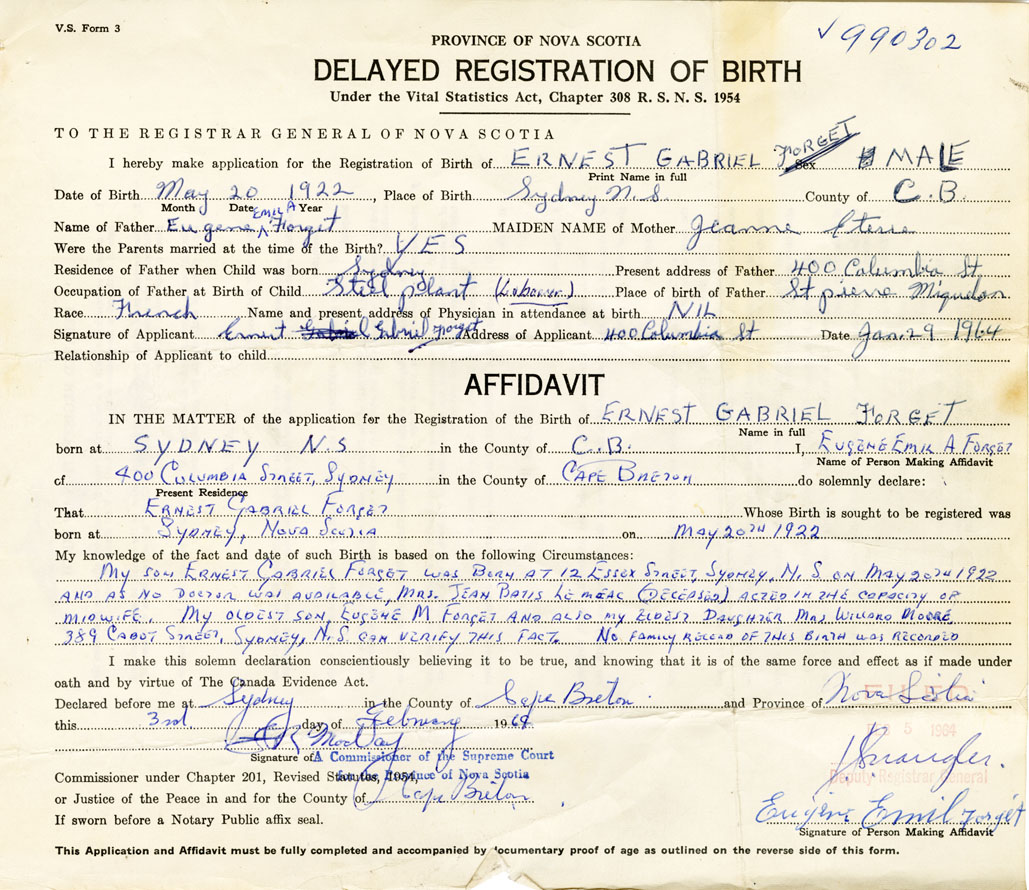 V.S. Form 3
√990302
PROVINCE OF NOVA SCOTIA
DELAYED REGISTRATION OF BIRTH
Under the Vital Statistics Act, Chapter 308 R. S. N. S. 1954
TO THE REGISTRAR GENERAL OF NOVA SCOTIA
I hereby make application for the Registration of Birth of ERNEST GABRIEL FORGET Sex MALE
Print Name in full
Date of Birth May 20 1922, Place of Birth Sydney N.S. County of C.B.
Month Date Year
Name of Father Eugene Emil A Forget MAIDEN NAME of Mother Jeanne
Were the Parents married at the time of the Birth? YES
Residence of Father when Child was born Sydney Present address of Father 400 Columbia St
Occupation of Father at Birth of Child Steel plant (Laborer) Place of birth of Father St pierre Miquelon
Race French Name and present address of Physician in attendance at birth NIL
Signature of Applicant Ernest Gabriel Forget Address of Applicant 400 Columbia St Date Jan. 29 1964
Relationship of Applicant to child
AFFIDAVIT
IN THE MATTER of the application for the Registration of the Birth of ERNEST GABRIEL FORGET
Name in full
born at SYDNEY N.S in the County of C.B. I, EUGÈNE EMIL A FORGET
Name of Person Making Affidavit
of 400 COLUMBIA STREET, SYDNEY in the County of CAPE BRETON do solemnly declare:
Present Residence
That ERNEST GABRIEL FORGET Whose Birth is sought to be registered was
born at SYDNEY, NOVA SCOTIA on MAY 20TH 1922
My knowledge of the fact and date of such Birth is based on the following Circumstances:
MY SON ERNEST GABRIEL FORGET WAS BORN AT 12 ESSEX STREET, SYDNEY, N.S. ON MAY 20TH 1922
AND AS NO DOCTOR WAS AVAILABLE, MRS. JEAN BATIS LEMEAL (DECEASED) ACTED IN THE CAPACITY OF
MIDWIFE. MY OLDEST SON, EUGÈNE M FORGET AND ALSO MY ELDEST DAUGHTER MRS WILLARD MOORE
389 CABOT STREET, SYDNEY, N.S. CAN VERIFY THIS FACT. NO FAMILY RECORD OF THIS BIRTH WAS RECORDED
I make this solemn declaration conscientiously believing it to be true, and knowing that it is of the same force and effect as if made under
oath and by virtue of The Canada Evidence Act.
Declared before me at Sydney in the County of Cape Breton and Province of Nova Scotia
FILED
this 3rd day of February 1964
5 1964
Signature of A Commissioner of the Supreme Court
for the Province of Nova Scotia
Commissioner under Chapter 201, Revised Statutes, 1954,
Deputy Registrar General
or Justice of the Peace in and for the County of Cape Breton
Eugène Emil Forget
If sworn before a Notary Public affix seal.
Signature of Person Making Affidavit
This Application and Affidavit must be fully completed and accompanied by documentary proof of age as outlined on the reverse side of this form.